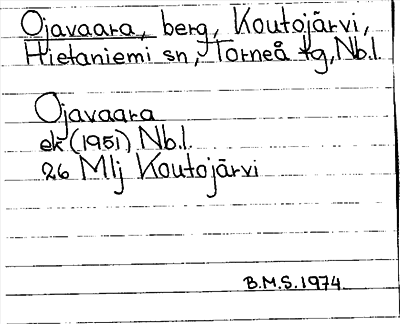 Ojavaara, berg, Koutojärvi,
Hietaniemi sn, Torneå tg, Nb.l.
Ojavaara
ek (1951) Nb.l.
26 Mlj Koutojärvi
B.M.S. 1974